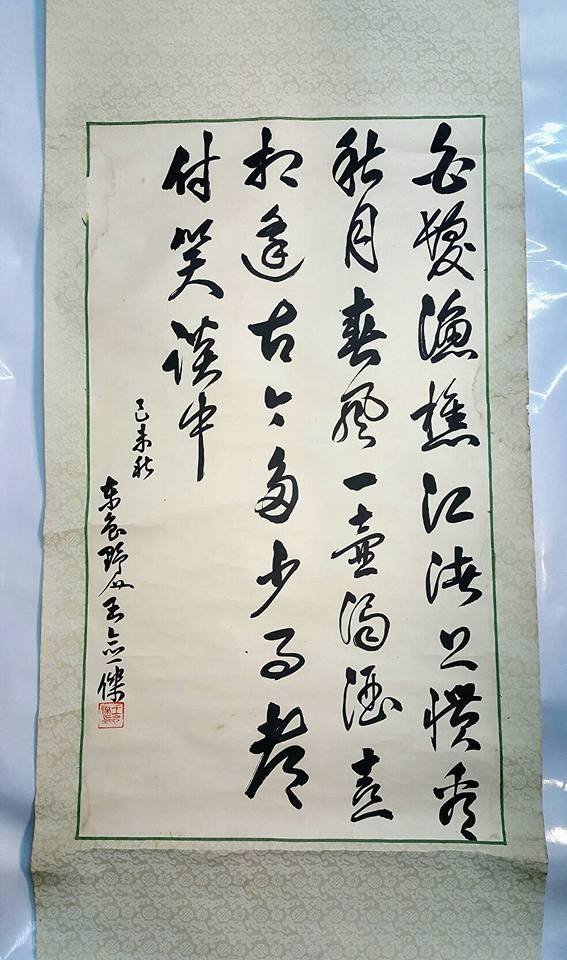 白髮漁樵江渚上慣看
秋月春風一壺濁酒喜
相逢古今多少事都
付笑談中
己未秋
野 王 傑